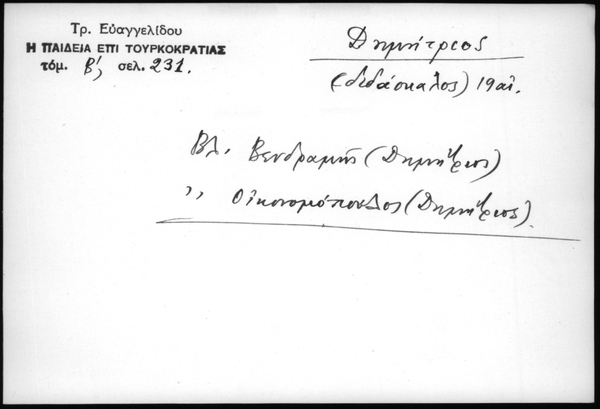 Τρ. Εὐαγγελίδου
Η ΠΑΙΔΕΙΑ ΕΠΙ ΤΟΥΡΚΟΚΡΑΤΙΑΣ
τόμ. Β', σελ. 231.
Δημήτριος
(διδάσκαλος) 19 αἰ.
Βλ. Βενδραμής (Δημήτριος)
,, Οἰκονομόπουλος (Δημήτριος).